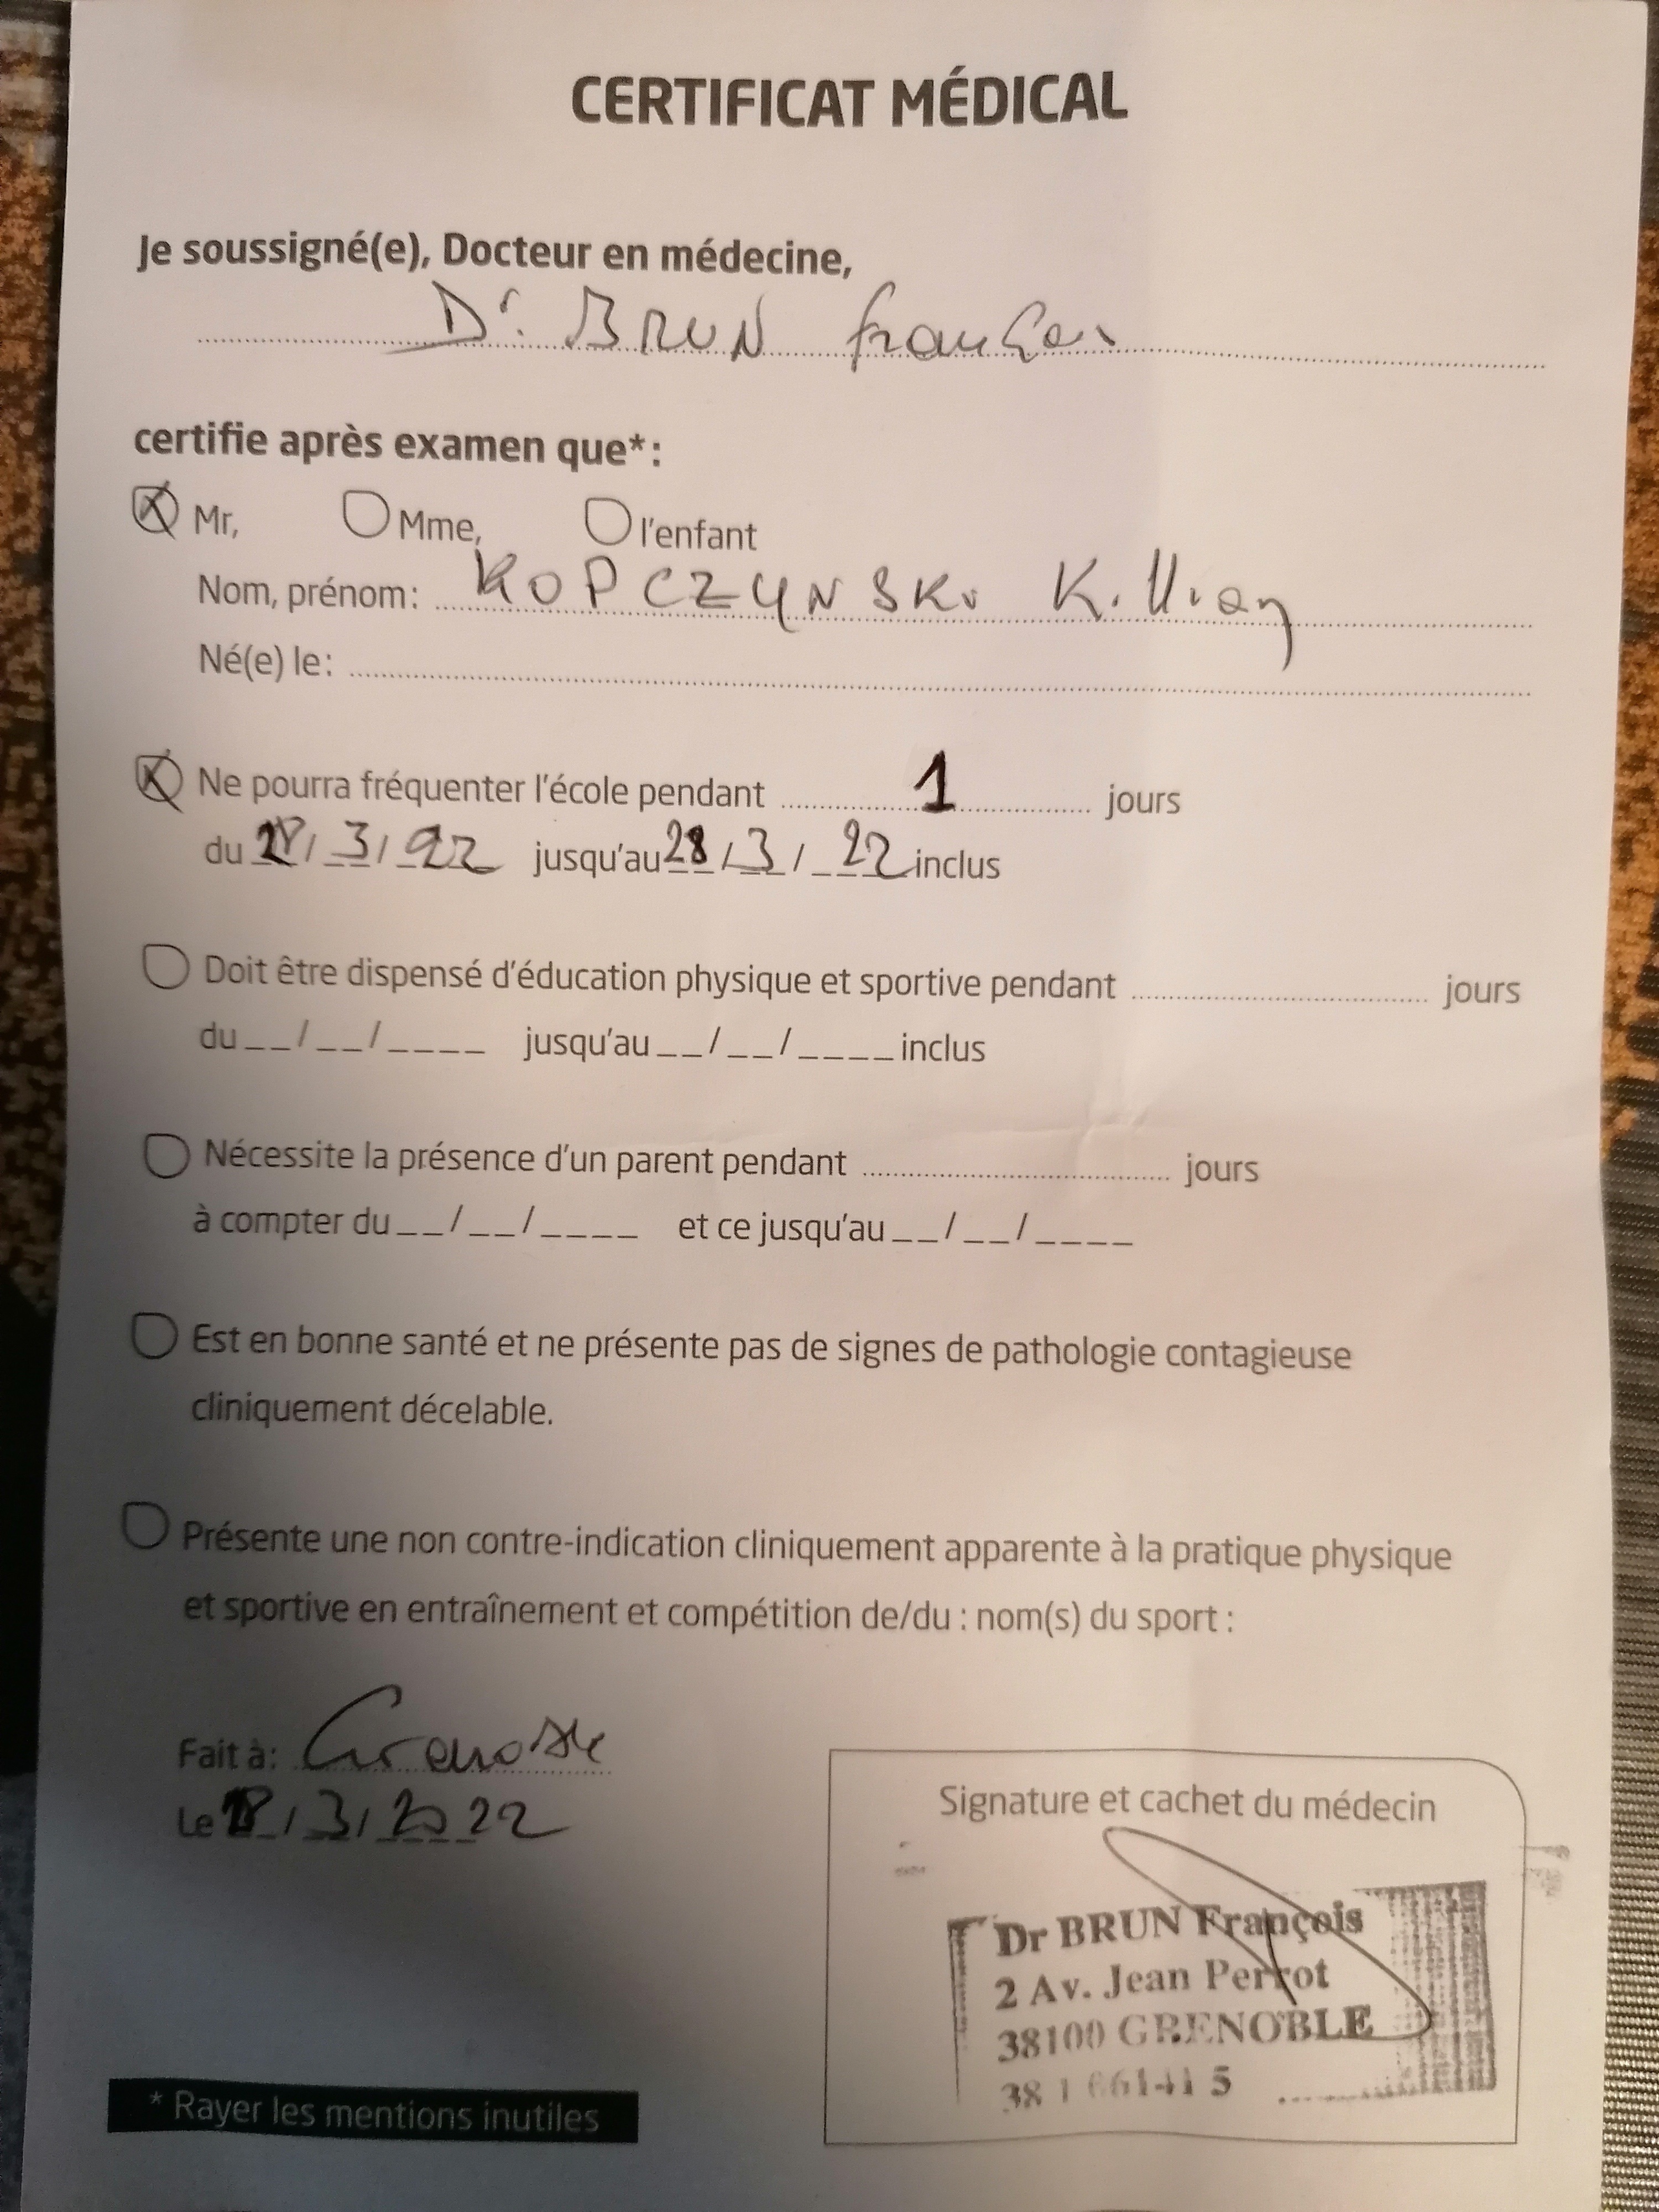 CERTIFICAT MÉDICAL
Je soussigné(e), Docteur en médecine,
Dr. BRUN François
certifie après examen que*:
Mr, Mme, l'enfant
Nom, prénom: KOPCZYNSKi Killian
Né(e) le:
Ne pourra fréquenter l'école pendant 1 jours
du /3/22 jusqu'au 28/3/22 inclus
Doit être dispensé d'éducation physique et sportive pendant jours
du __/__/____ jusqu'au __/__/____ inclus
Nécessite la présence d'un parent pendant jours
à compter du __/__/____ et ce jusqu'au __/__/____
Est en bonne santé et ne présente pas de signes de pathologie contagieuse
cliniquement décelable.
Présente une non contre-indication cliniquement apparente à la pratique physique
et sportive en entraînement et compétition de/du : nom(s) du sport :
Fait à: Grenoble
Le /3/2022
Signature et cachet du médecin
Dr BRUN François
2 Av. Jean Perrot
38100 GRENOBLE
38 1 5
* Rayer les mentions inutiles